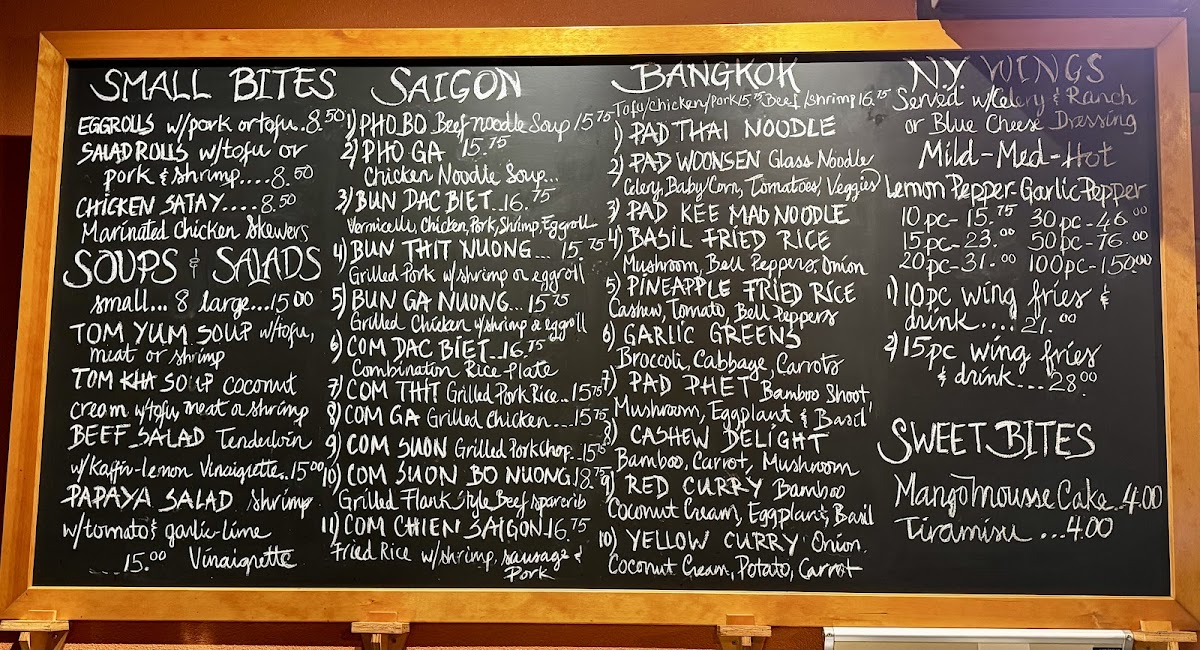 SMALL BITES
EGGROLLS w/pork or tofu..8.50
SALAD ROLLS w/tofu or
pork & shrimp....8.50
CHICKEN SATAY....8.50
Marinated Chicken Skewers
SOUPS & SALADS
small...8 large...15.00
TOM YUM SOUP w/tofu,
meat or shrimp
TOM KHA SOUP coconut
cream w/tofu, meat or shrimp
BEEF SALAD Tenderloin
w/Kaffir-lemon Vinaigrette..15.00
PAPAYA SALAD shrimp
w/tomato & garlic-lime
...15.00 Vinaigrette
SAIGON
1) PHO BO Beef noodle Soup 15.75
2) PHO GA 15.75
Chicken Noodle Soup...
3) BUN DAC BIET...16.75
Vermicelli, Chicken, Pork, Shrimp, Eggroll
4) BUN THIT NUONG... 15.75
Grilled Pork w/shrimp or eggroll
5) BUN GA NUONG... 15.75
Grilled Chicken w/shrimp or eggroll
6) COM DAC BIET...16.75
Combination Rice Plate
7) COM THIT Grilled Pork Rice...15.75
8) COM GA Grilled Chicken....15.75
9) COM SUON Grilled Pork Chop..15.75
10) COM SUON BO NUONG 18.75
Grilled Flank Style Beef sparerib
11) COM CHIEN SAIGON 16.75
Fried Rice w/shrimp, sausage &
Pork
BANGKOK
Tofu/chicken/Pork 15.75 Beef/shrimp 16.75
1) PAD THAI NOODLE
2) PAD WOONSEN Glass Noodle
Celery, Baby Corn, Tomatoes, Veggies
3) PAD KEE MAO NOODLE
4) BASIL FRIED RICE
Mushroom, Bell Peppers, Onion
5) PINEAPPLE FRIED RICE
Cashew, Tomato, Bell Peppers
6) GARLIC GREENS
Broccoli, Cabbage, Carrots
7) PAD PHET Bamboo Shoot
Mushroom, Eggplant & Basil
8) CASHEW DELIGHT
Bamboo, Carrot, Mushroom
9) RED CURRY Bamboo
Coconut Cream, Eggplant, Basil
10) YELLOW CURRY Onion
Coconut Cream, Potato, Carrot
N.Y WINGS
Served w/Celery & Ranch
or Blue Cheese Dressing
Mild-Med-Hot
Lemon Pepper-Garlic Pepper
10 pc-15.75 30 pc-46.00
15 pc-23.00 50 pc-76.00
20 pc-31.00 100 pc-150.00
1) 10 pc wing fries &
drink....21.00
2) 15 pc wing fries
& drink....28.00
SWEET BITES
Mango mousse Cake..4.00
Tiramisu...4.00